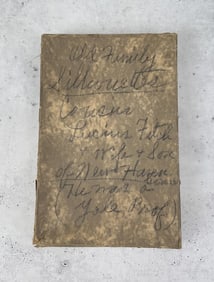 Old Family
Silhouettes
Cousins
Lucius Fitch
& Wife & Son
of New Haven
(He was a
Yale Prof)